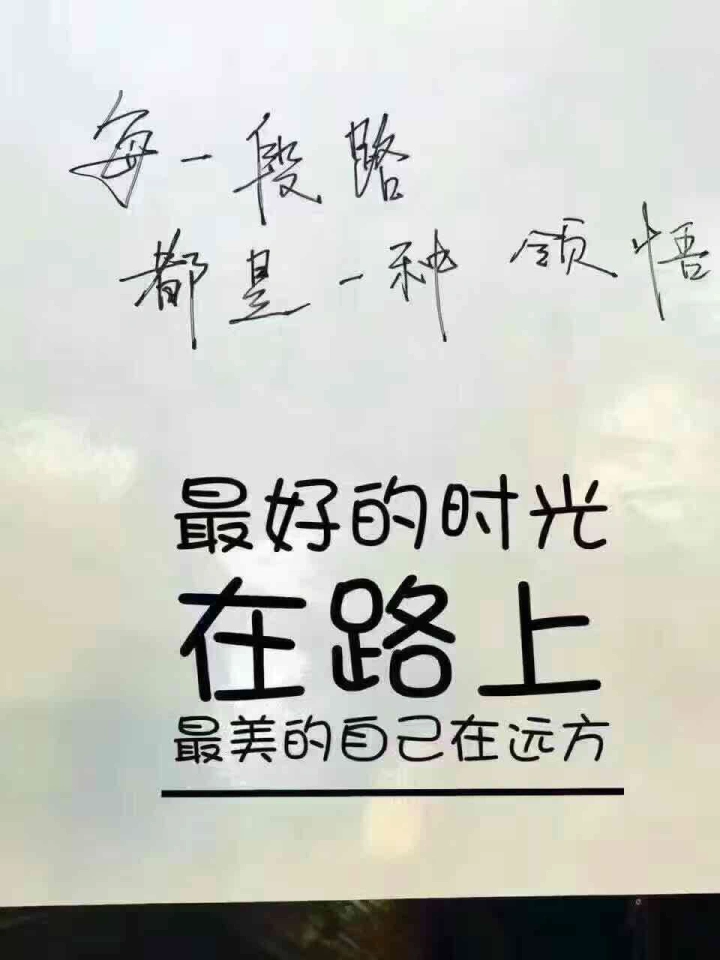 每一段路
都是一种领悟
最好的时光
在路上
最美的自己在远方